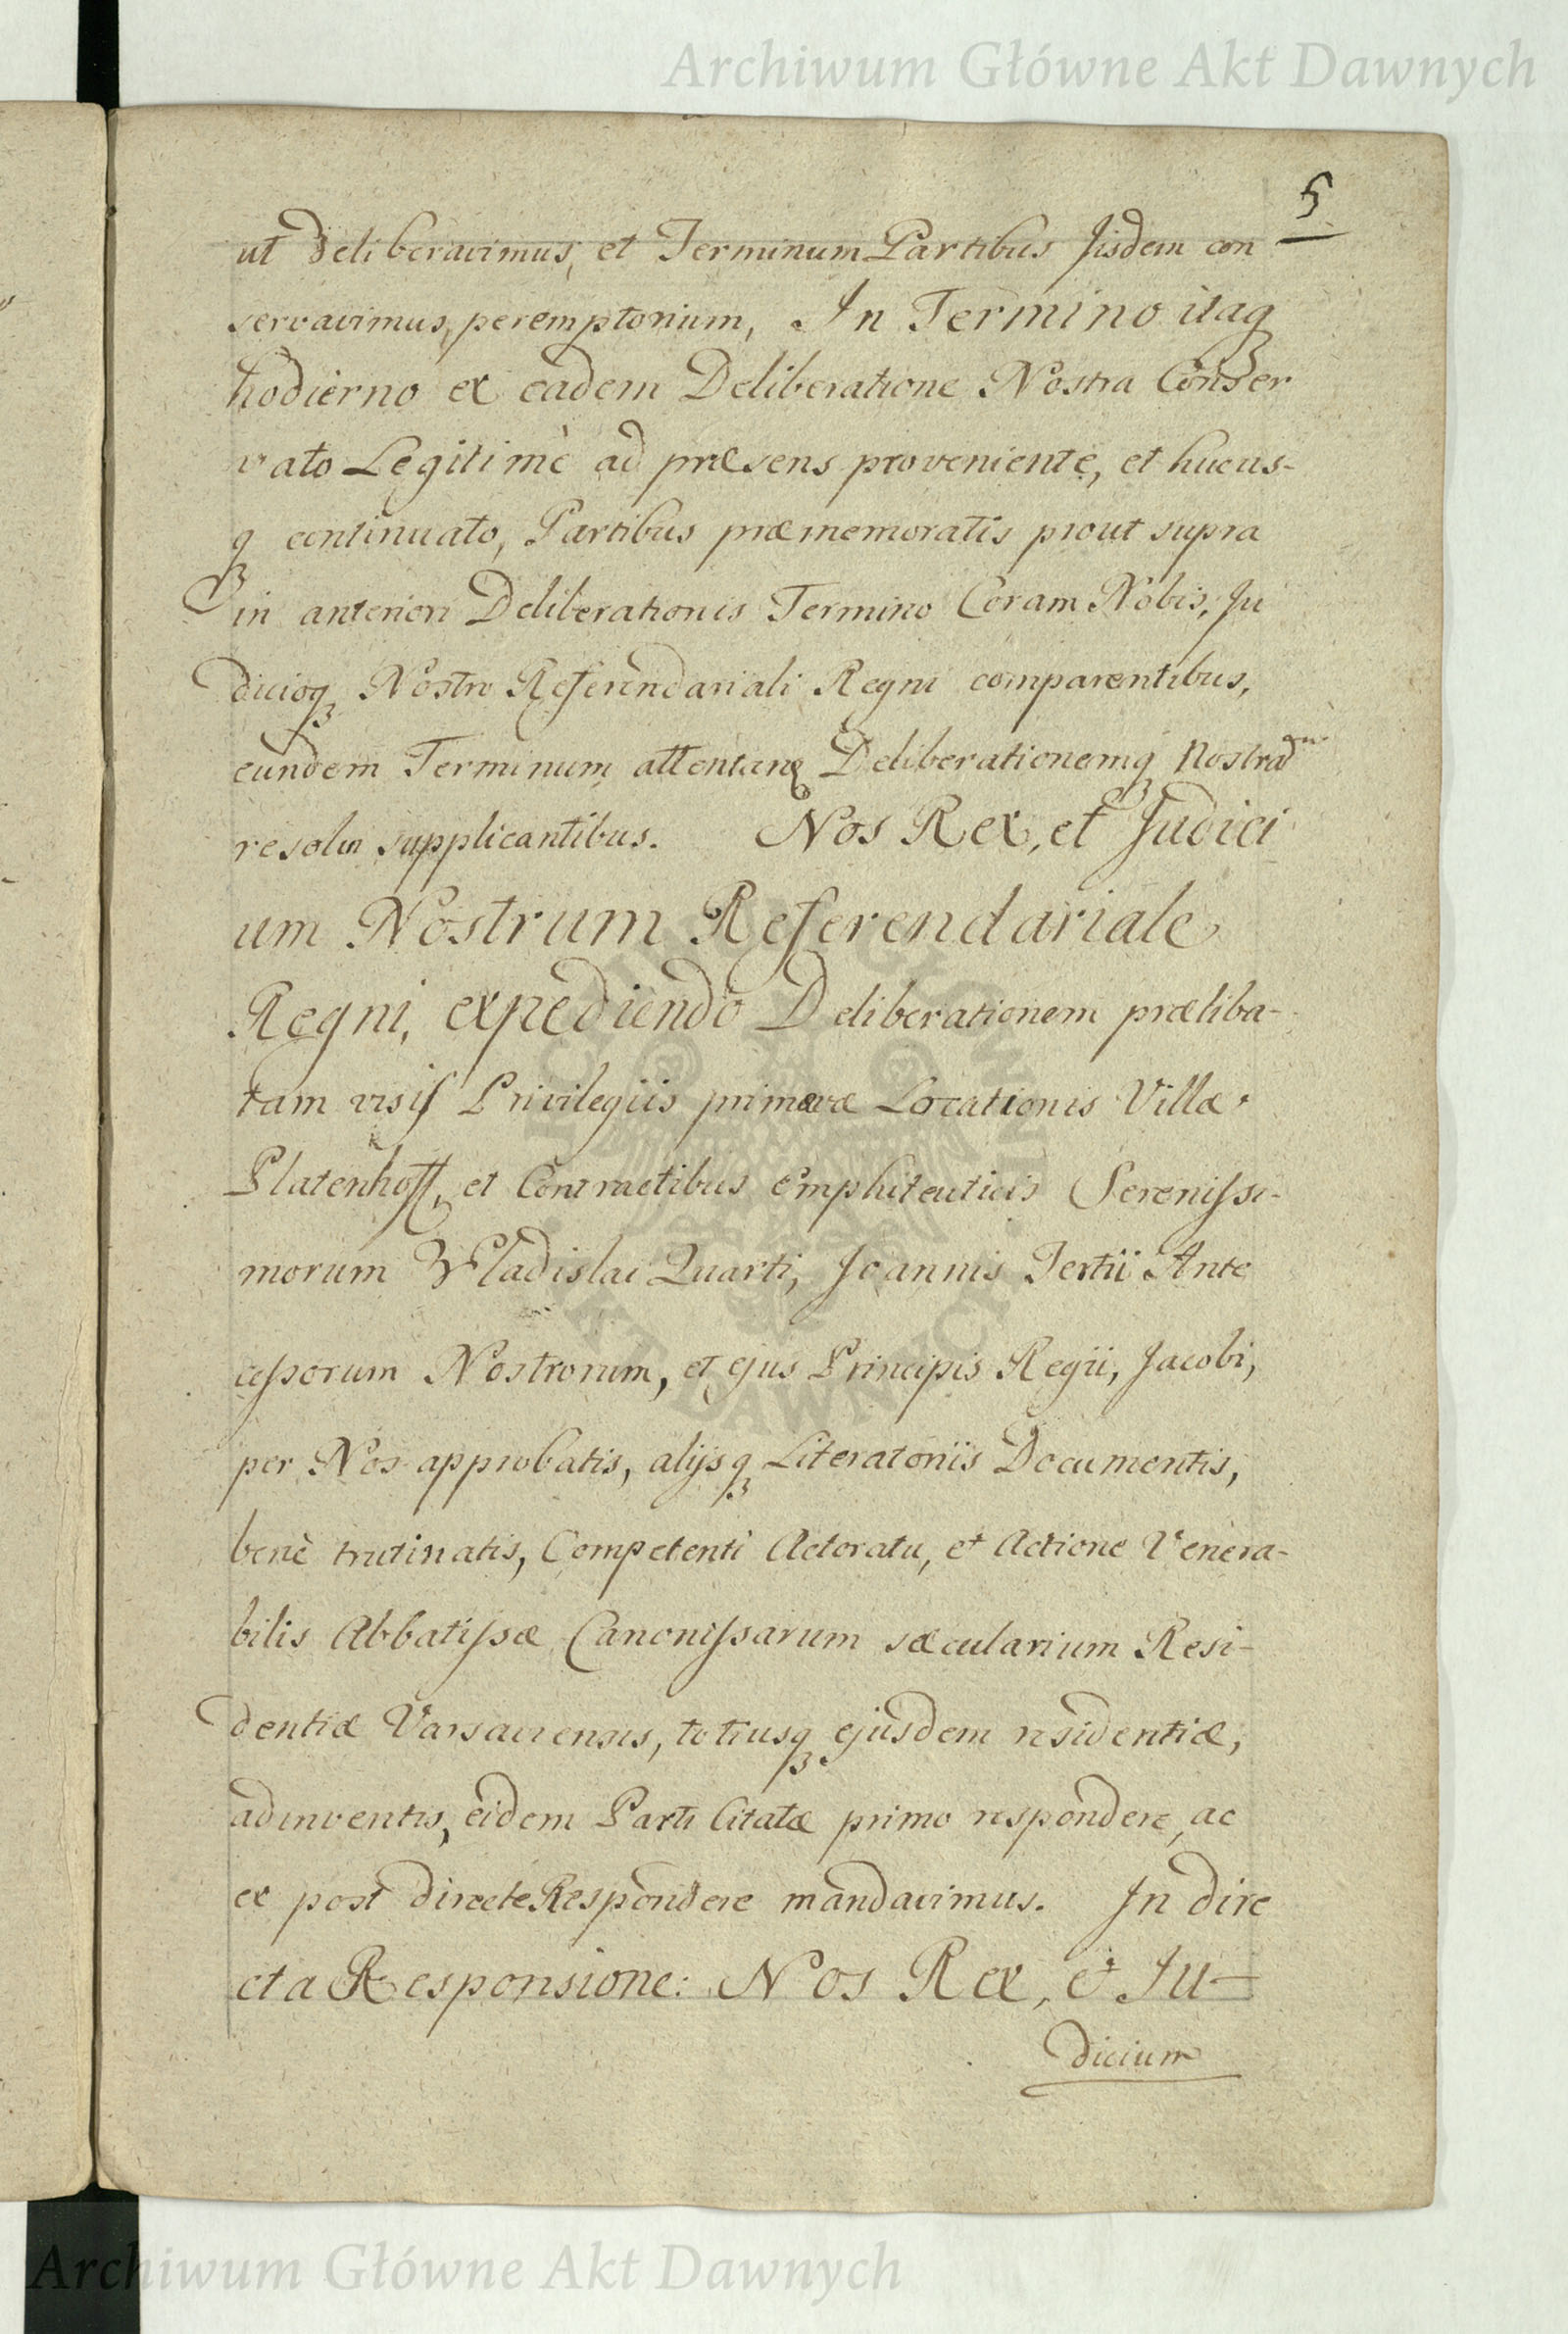 Archiwum Główne Akt Dawnych
5
ut deliberavimus, et Terminum Partibus Jisdem con
servavimus, peremptorium, In Termino itaq
hodierno ex eadem Deliberatione Nostra Conser
vato Legitimè ad præsens proveniente, et hucus-
q continuato, Partibus præmemoratis prout supra
in anteriori Deliberationis Termino Coram Nobis, Ju
dicioq Nostro Referendariali Regni comparentibus,
eundem Terminum attentari Deliberationemq Nostram
resolvi supplicantibus. Nos Rex, et Judici
um Nostrum Referendariale
Regni, expediendo Deliberationem præliba-
tam visis Privilegiis primævæ Locationis Villæ
Platenhoff, et Contractibus Emphiteuticis Serenissi-
morum Vladislai Quarti, Joannis Tertii Ante
cessorum Nostrorum, et ejus Principis Regii, Jacobi,
per Nos approbatis, alijsq Literatoriis Documentis,
benè trutinatis, Competenti Actoratu, et Actione Venera-
bilis Abbatissæ Canonissarum sæcularium Resi-
dentiæ Varsaviensis, totiusq ejusdem residentiæ,
adinventis, eidem Parti Citatæ primo respondere, ac
ex post directe Respondere mandavimus. In dire
cta Responsione: Nos Rex, et Ju-
dicium
Archiwum Główne Akt Dawnych